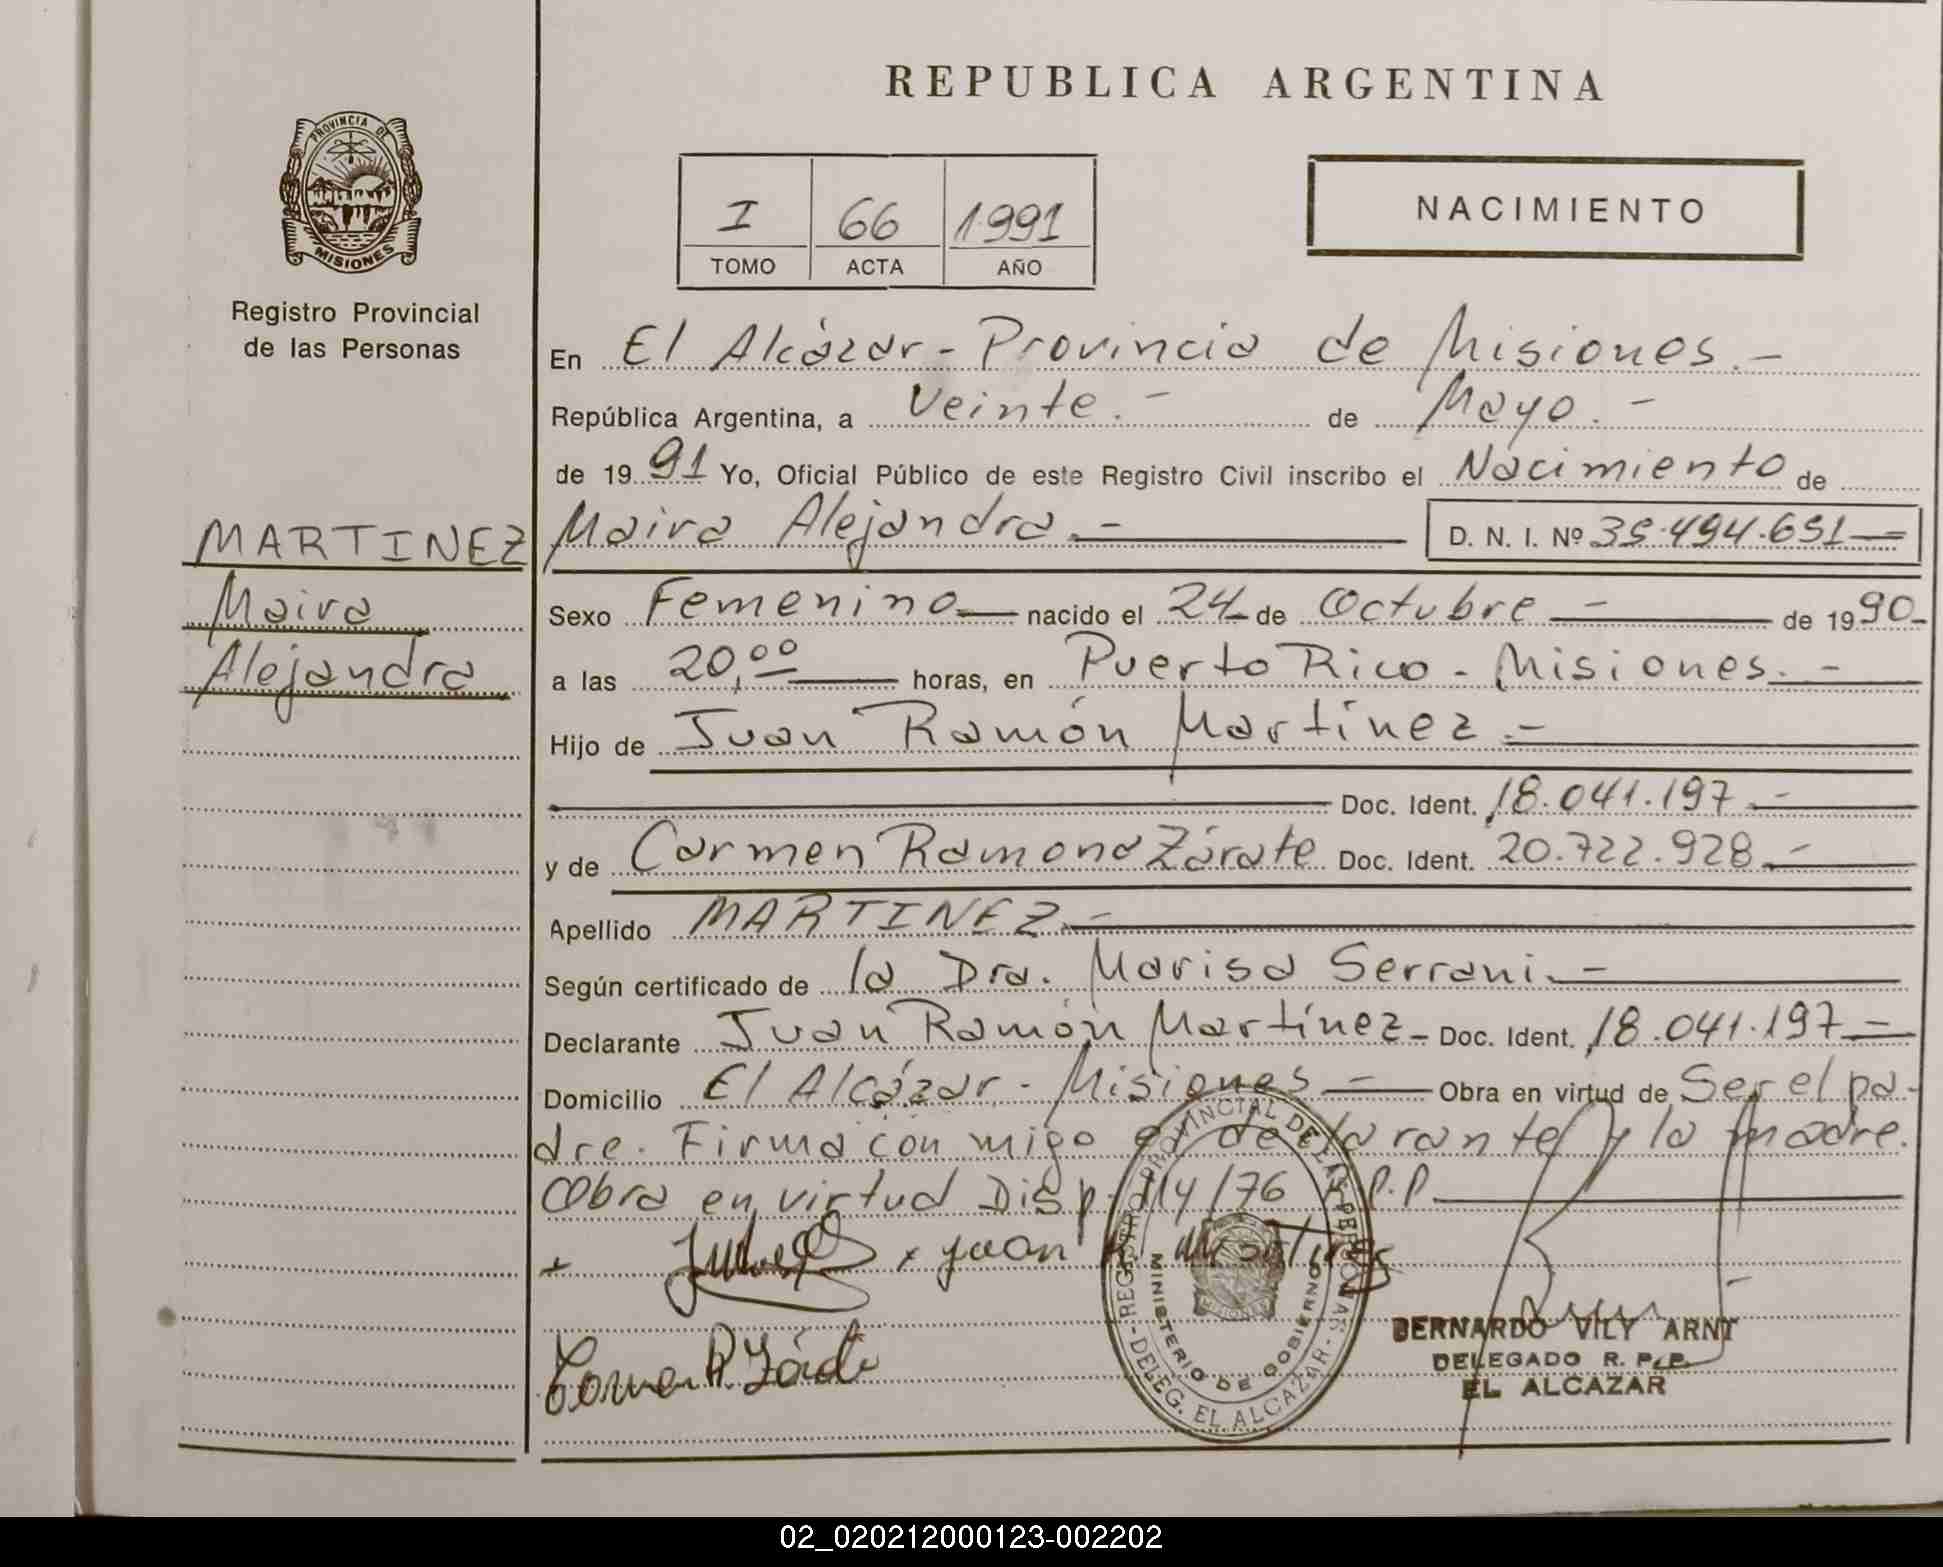 REPUBLICA ARGENTINA
PROVINCIA DE
MISIONES
Registro Provincial
de las Personas
I 66 1991
TOMO ACTA AÑO
NACIMIENTO
En El Alcázar - Provincia de Misiones. -
República Argentina, a Veinte. - de Mayo. -
de 1991 Yo, Oficial Público de este Registro Civil inscribo el Nacimiento de
MARTINEZ
Maira
Alejandra
Maira Alejandra. - D. N. I. Nº 35.494.651 -
Sexo Femenino nacido el 24 de Octubre - de 1990-
a las 20,00 horas, en Puerto Rico - Misiones. -
Hijo de Juan Ramón Martínez. -
Doc. Ident. 18.041.197. -
y de Carmen Ramona Zárate Doc. Ident. 20.722.928. -
Apellido MARTINEZ. -
Según certificado de la Dra. Marisa Serrani. -
Declarante Juan Ramón Martínez - Doc. Ident. 18.041.197 -
Domicilio El Alcázar - Misiones - Obra en virtud de Ser el pa-
dre. Firma con migo el declarante y la madre.
Obra en virtud Disp. 114/76 R.P.P.
x Juan R. Martinez
Carmen R. Zárate
REGISTRO PROVINCIAL DE LAS PERSONAS
MINISTERIO DE GOBIERNO
MISIONES
- DELEG. EL ALCAZAR -
BERNARDO VILY ARNT
DELEGADO R. P. P.
EL ALCAZAR
02_020212000123-002202